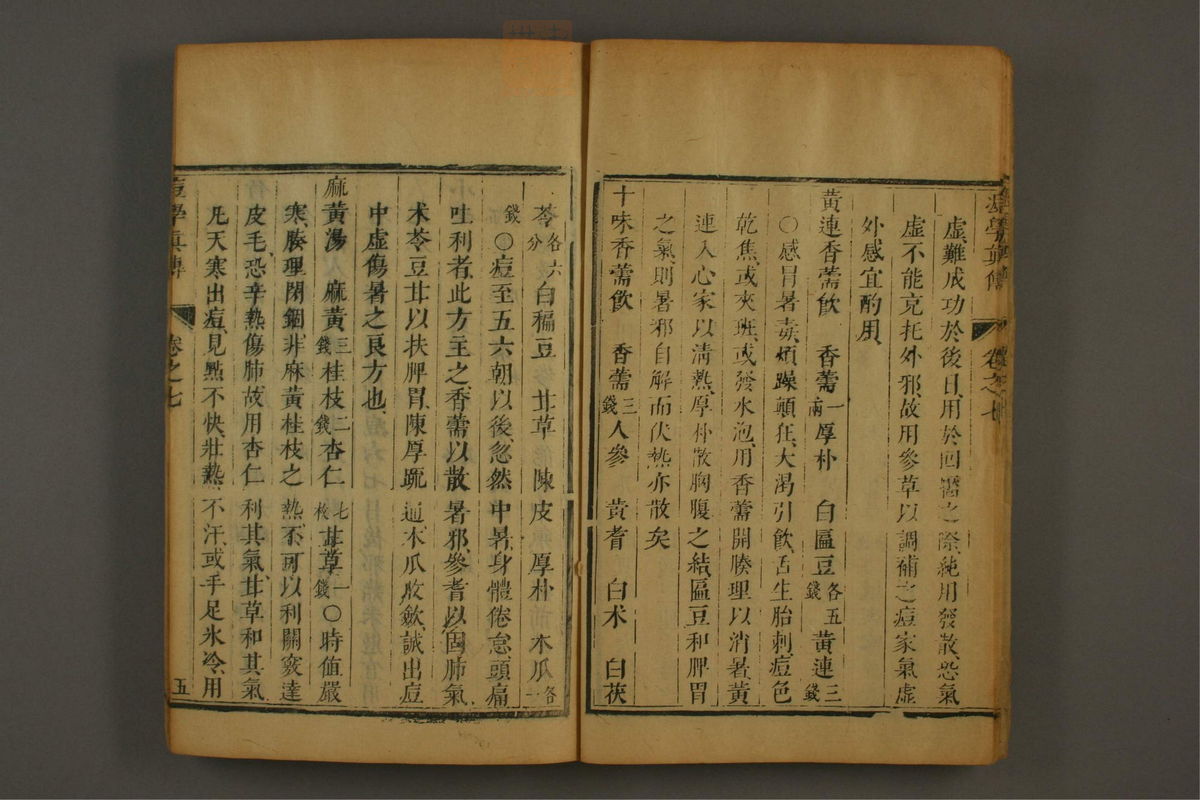 虛難成功於後日用於回𤻲之際純用發散恐氣
虛不能克托外邪故用參草以調補之痘家氣虛
外感宜酌用
黃連香薷飲 香薷一兩厚朴 白匾豆各五錢黃連三錢
○感冒暑毒煩躁顛狂大渴引飲舌生胎刺痘色
乾焦或夾斑或發水泡用香薷開腠理以消暑黃
連入心家以清熱厚朴散胸腹之結匾豆和脾胃
之氣則暑邪自解而伏熱亦散矣
十味香薷飲 香薷三錢人參 黃耆 白术 白茯
苓各六分白稨豆 甘草 陳皮 厚朴 木瓜各一
錢○痘至五六朝以後忽然中暑身體倦怠頭痛
吐利者此方主之香薷以散暑邪參耆以固肺氣
术苓豆甘以扶脾胃陳厚疏通木瓜收歛誠出痘
中虛傷暑之良方也
麻黃湯 麻黃三錢桂枝二錢杏仁七枚甘草一錢○時值嚴
寒腠理閉錮非麻黃桂枝之熱不可以利關竅達
皮毛恐辛熱傷肺故用杏仁利其氣甘草和其氣
凡天寒出痘見點不快壯熱不汗或手足氷冷用
痘學真傳 卷之七 五